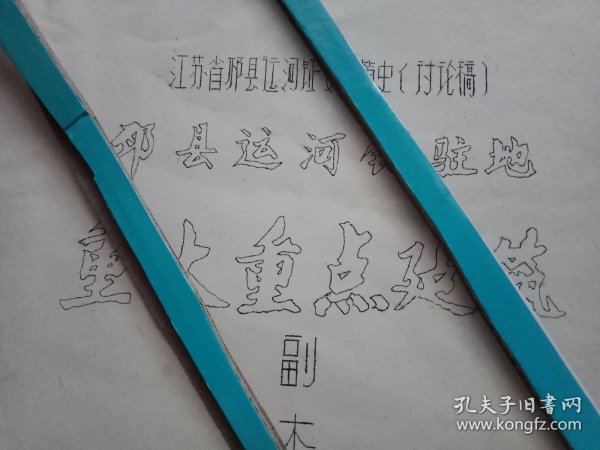 江苏省邳县运河镇 简史(讨论稿)
邳县运河镇驻地
重大重点建筑
副
本
孔夫子旧书网
www.kongfz.com